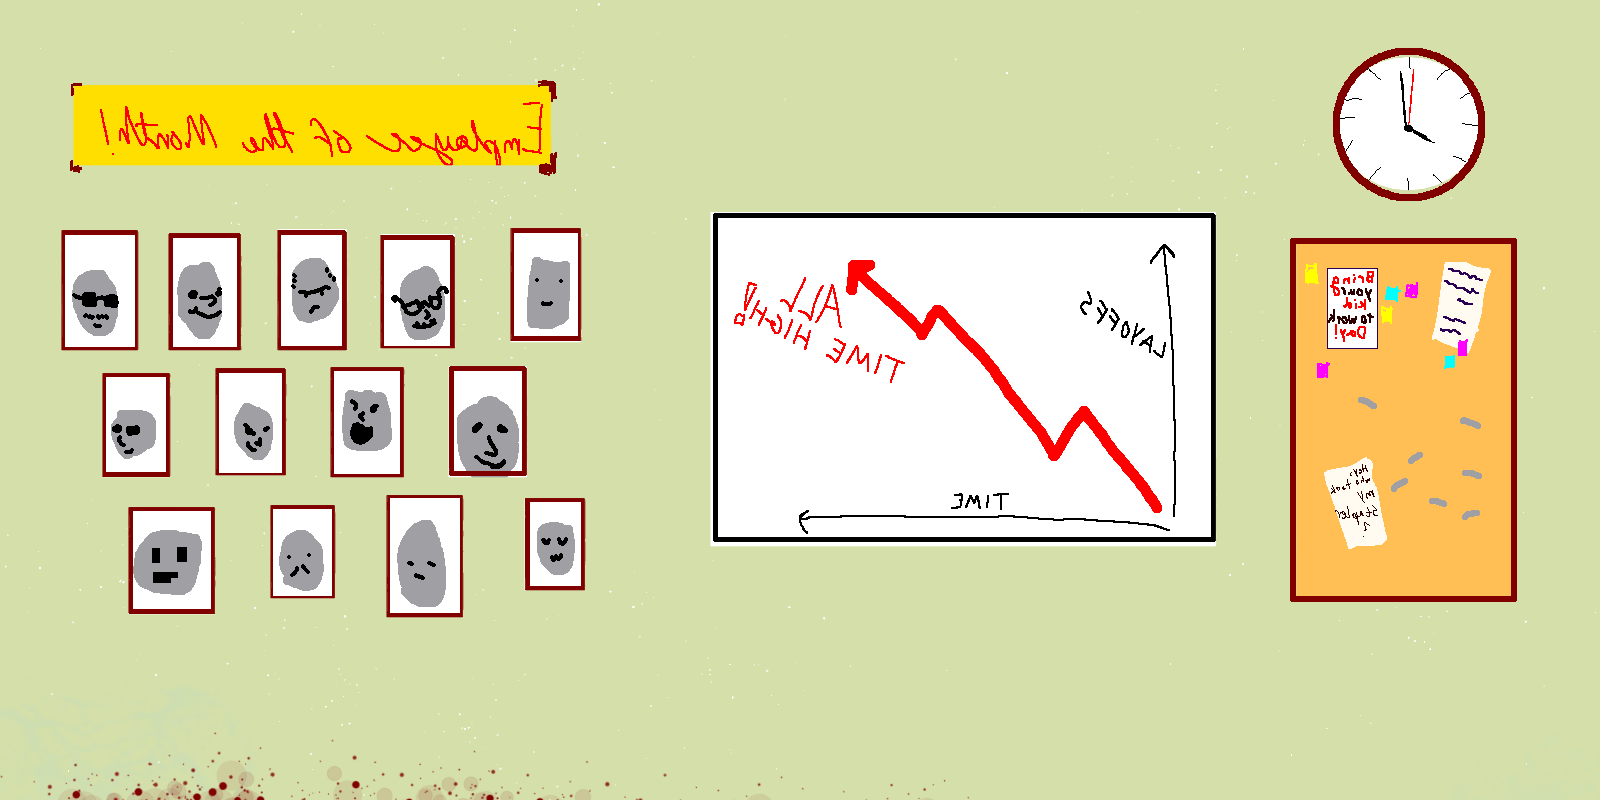 Employee of the Month!
ALL
TIME HIGH!
LAYOFFS
TIME
Bring
your
kid
to work
Day!
Hey,
who took
my
stapler
?